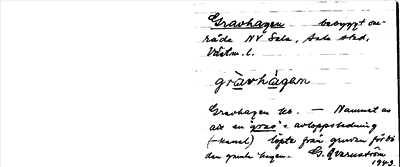 Gravhagen bebyggt om-
råde NV Sala, Sala stad,
Västm. l.
gràvhàgan
Gravhagen kb. — Namnet av
att en grav = avloppsledning
(-kanal) löpte från gruvan förbi
den gamla hagen. G. Qvarnström
1943.